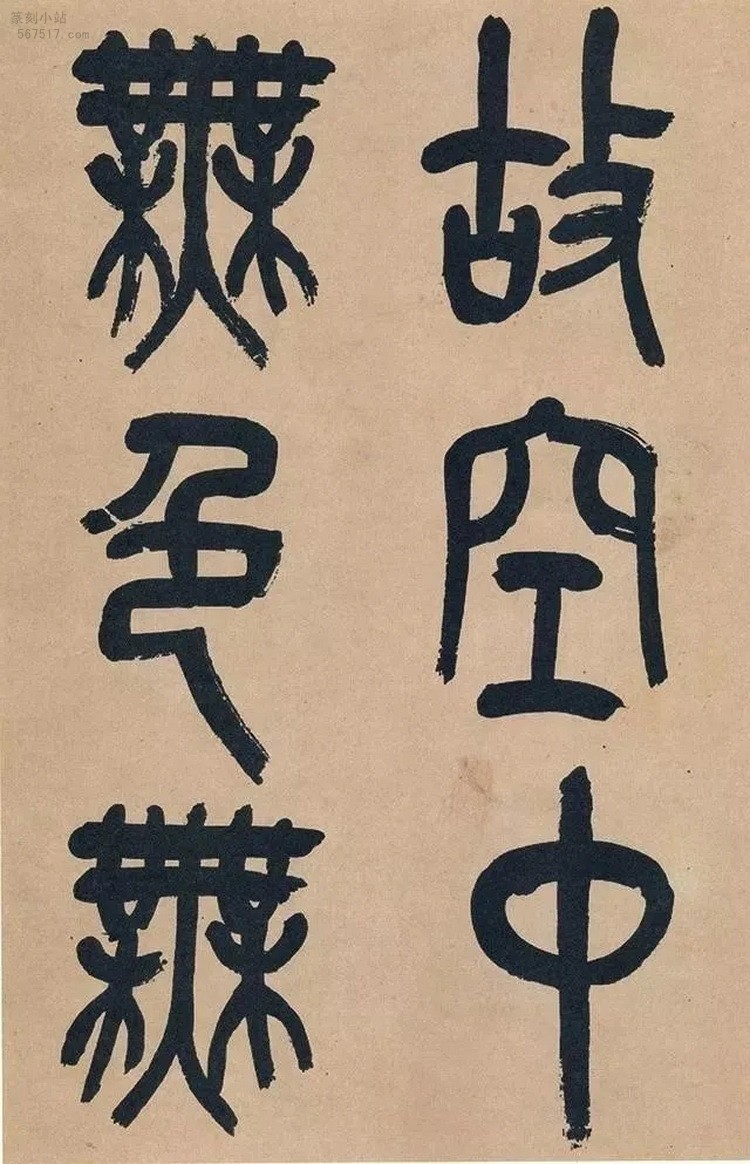 篆刻小站
567517.com
故空中
無色無